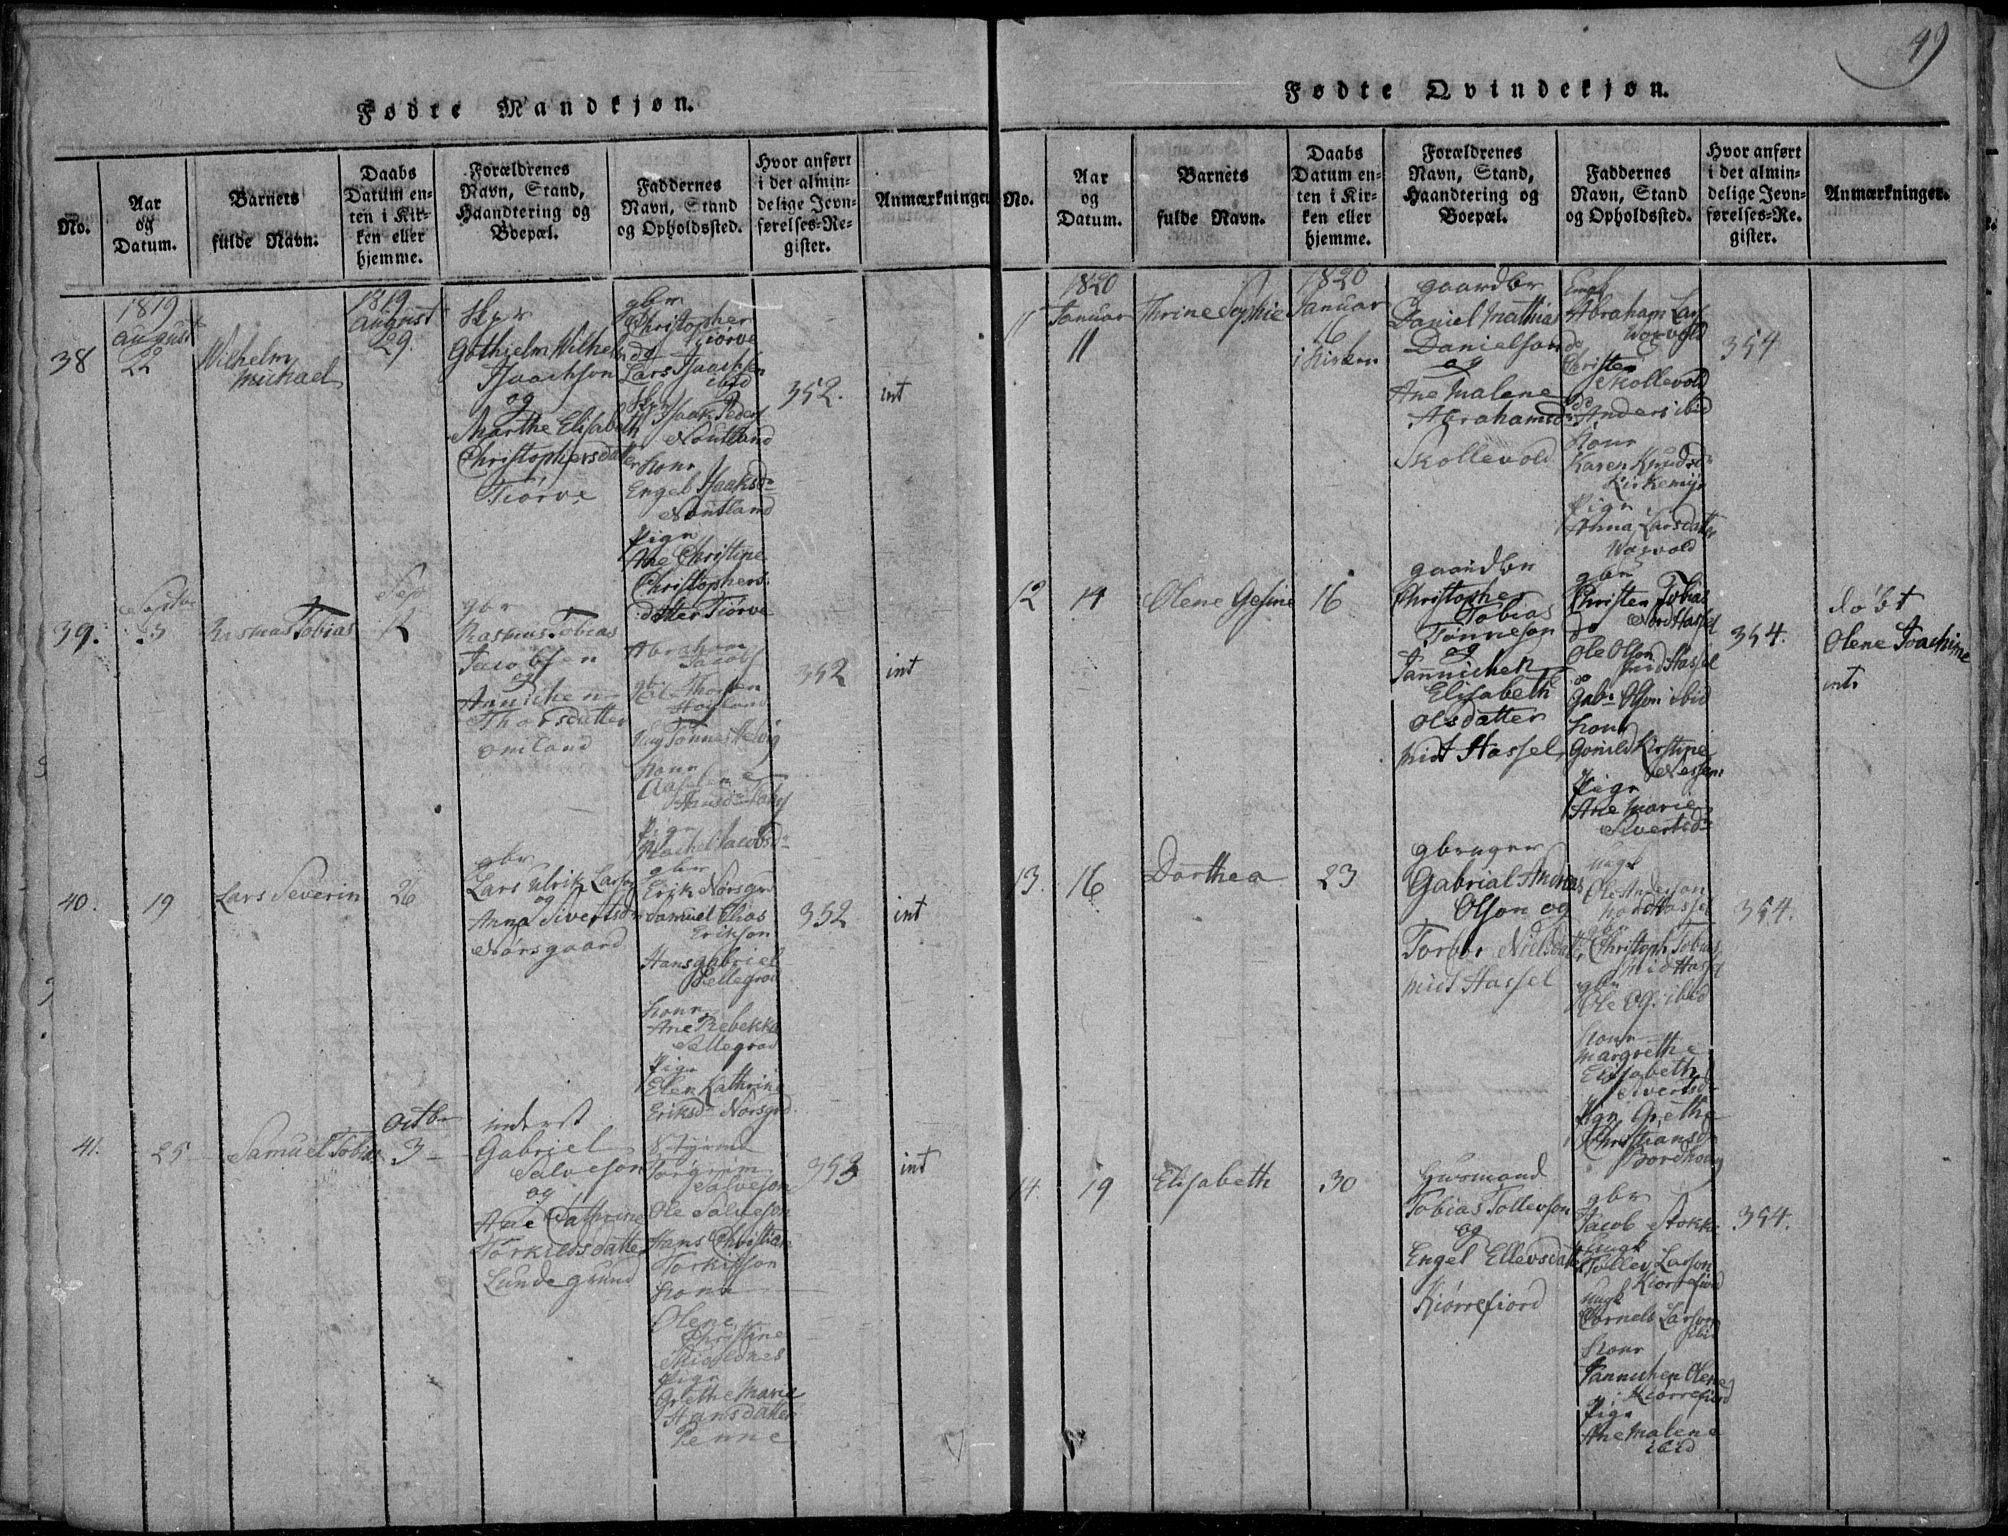 49
Fødte Mandkjøn.
No.
Aar
og
Datum.
Barnets
fulde Navn.
Daabs
Datum en-
ten i Kir-
ken eller
hjemme.
Forældrenes
Navn, Stand,
Haandtering og
Boepæl.
Faddernes
Navn, Stand
og Opholdssted.
Hvor anført
i det almin-
delige Jevn-
førelses-Re-
gister.
Anmærkninger
38
1819
august
22
Wilhelm
Michael
1819
august
29.
Skpr
Gothjelm Wilhelm
Isaachson
og
Marthe Elisabeth
Christophersdatter
Tiørve
gbr
Christopher
Tiørve
do
Lars Isaachsen
ibid
Skpr
Isaak Peders
Noutland
kone
Engel Isaaksd
Noutland
Pige
Ane Christine
Christophers
datter Tiørve
352.
int
39.
3
Rasmus Tobias
Sep
12
gbr
Rasmus Tobias
Jacobsen
og
Anichen
Thorsdatter
omland
Abraham
Jacobs
gbr
Thorsen
Tønnes
kone
Pige
Rachel Jacobsd
352
int
40.
19
Lars Severin
26
gbr
Lars Ulrik Larson
og
Anna Sivertsdr
Norsgaard
gbr
Erik Norsgrd
Samuel Elias
Erikson
Hans gabriel
Sellegrod
kone
Ane Rebekka
Sellegrod
Pige
Elen Kathrine
Eriksd Norsgrd
352
int
41.
25
Samuel Tobias
Octbr
3
inderst
Gabriel
Salveson
og
Ane Cathrine
Torkildsdatter
Lunde grund
Styrmd
Torgrim
Salveson
Ole Salveson
Hans Christian
Torkilson
kone
Olene
Christine
Pige
Grethe Marie
Hansdatter
Penne
353
int
Fødte Qvindekjøn.
No.
Aar
og
Datum.
Barnets
fulde Navn.
Daabs
Datum en-
ten i Kir-
ken eller
hjemme.
Forældrenes
Navn, Stand,
Haandtering og
Boepæl.
Faddernes
Navn, Stand
og Opholdssted.
Hvor anført
i det almin-
delige Jevn-
førelses-Re-
gister.
Anmærkninger.
11
1820
Januar
11
Thrine Sophie
1820
Januar
16
i kirken
gaardbr
Daniel Mathias
Danielson
og
Ane Malene
Abrahamsd
Skollevold
Abraham Lars
do
Christen
Skollevold
do
Anders ibid
kone
Karen Knudsd
Kirkemyr
Pige
Anna Larsdatter
354
12
14
Olene Gesine
16
gaardbr
Christopher
Tobias
Tønneson
og
Tannichen
Elisabeth
Olsdatter
Midt Hassel
gbr
Christen Tobias
Nord Hassel
do
Ole Olson
Mid Hassel
do
Gabr Olson ibid
kone
Gonild Kirstine
Pige
Ane Marie
Sivertsd
354.
døbt
Olene Joachime
int
13.
16
Dorthea
23
gbruger
Gabrial Andreas
Olson og
Torbor Nielsdatter
midt Hassel
Ungk
Ole Anderson
Nord Hassel
gbr
Christoph Tobias
Mid Hassel
gbr
Ole Ol. ibid
kone
Margrethe
Elisabeth
Sivertsd
Pige Grethe
Christiansd
Bordhoug
354.
14.
19
Elisabeth
30
Huusmand
Tobias Tollevson
og
Engel Ellevsdatter
Kiørrefiord
gbr
Jacob Stokke
Ungk
Tollev Larson
Kiørrefiord
Ungk
Cornels Larson
ibid
kone
Tannichen Olene
Kiørrefiord
Pige
Ane Malene
ibid
354.